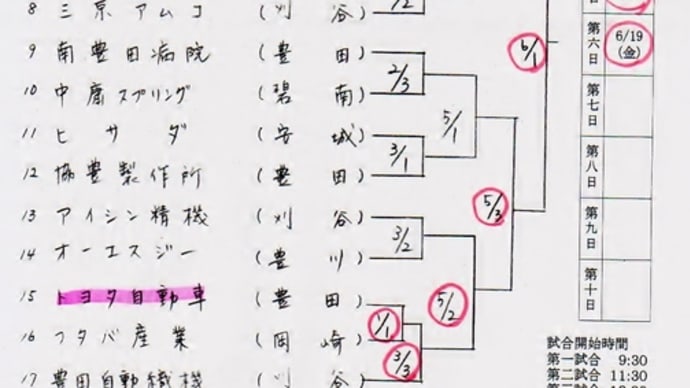 8 三京アムコ (刈谷)
9 南豊田病院 (豊田)
10 中庸スプリング (碧南)
11 ヒサダ (安城)
12 協豊製作所 (豊田)
13 アイシン精機 (刈谷)
14 オーエスジー (豊川)
15 トヨタ自動車 (豊田)
16 フタバ産業 (岡崎)
17 豊田自動織機 (刈谷)
2/3
5/1
3/1
6/1
5/3
3/2
5/2
1/1
3/3
第六日 6/19 (金)
第七日
第八日
第九日
第十日
試合開始時間
第一試合 9:30
第二試合 11:30